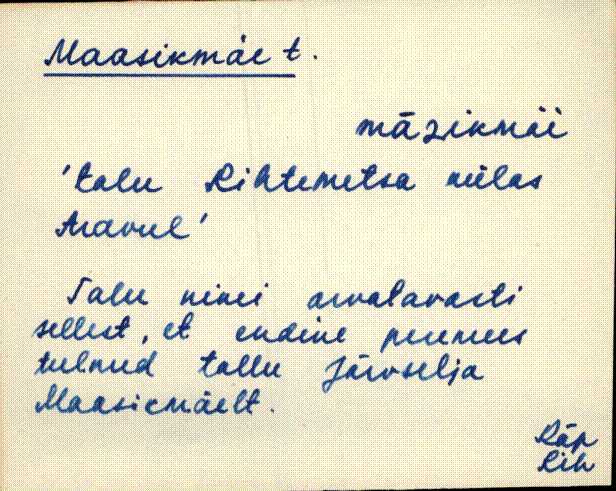 Maasikmäe t.
māzikmäi
'talu Rihtemetsa külas
Aravul'
Talu nimi arvatavasti
sellest, et endine peremees
tulnud tallu Järvselja
Maasikmäelt.
Räp
Rih